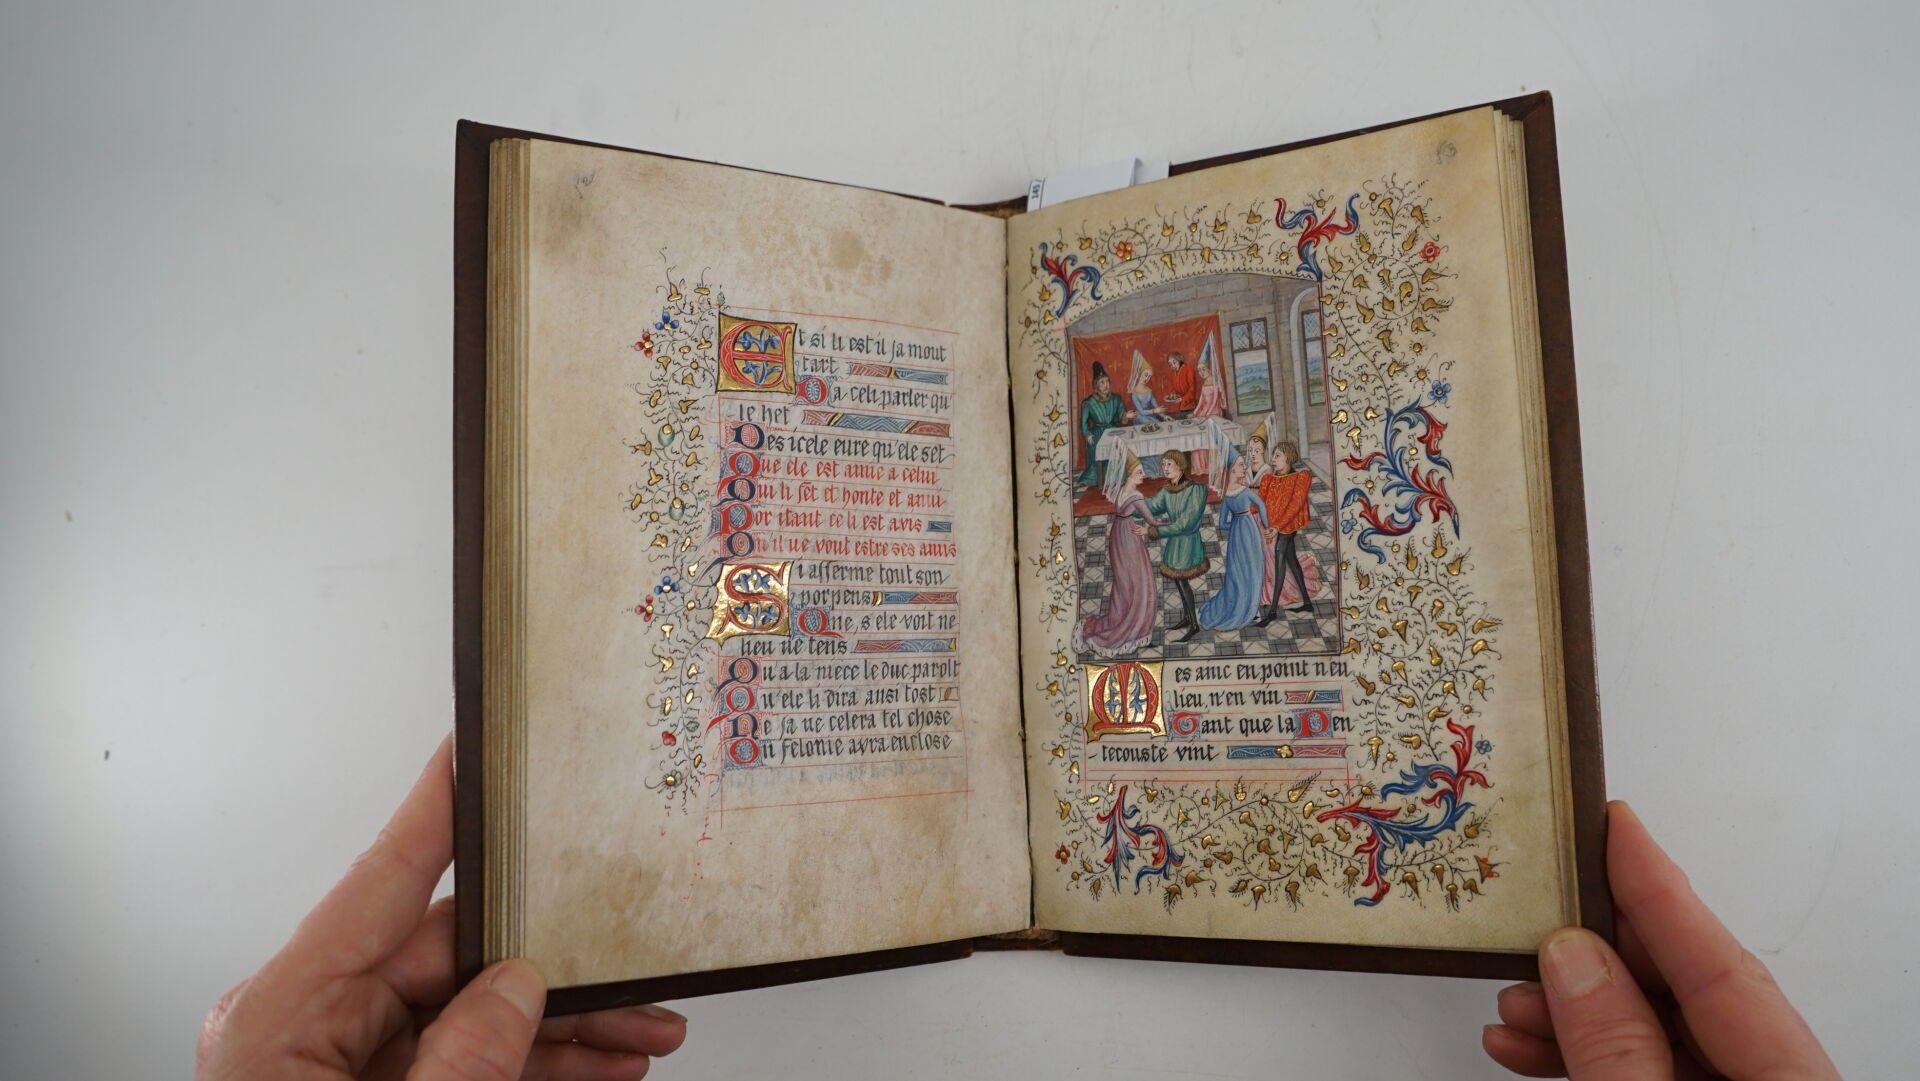 Et si li est il ja mout
tart
Da celi parler qu
le het
Des icele eure qu'ele set
Que ele est amie a celui
Qui li fet et honte et anui
Por itant ce li est avis
Qu'il ne vout estre ses amis
Si afferme tout son
porpens
Que, s'ele voit ne
lieu ne tens
Qu a la niece le duc parolt
Qu'ele li dira ausi tost
Ne ja ne celera tel chose
On felonie avra enclose
145
Mes ainc en point n'en
lieu, n'en vin
Tant que la Pen
tecouste vint